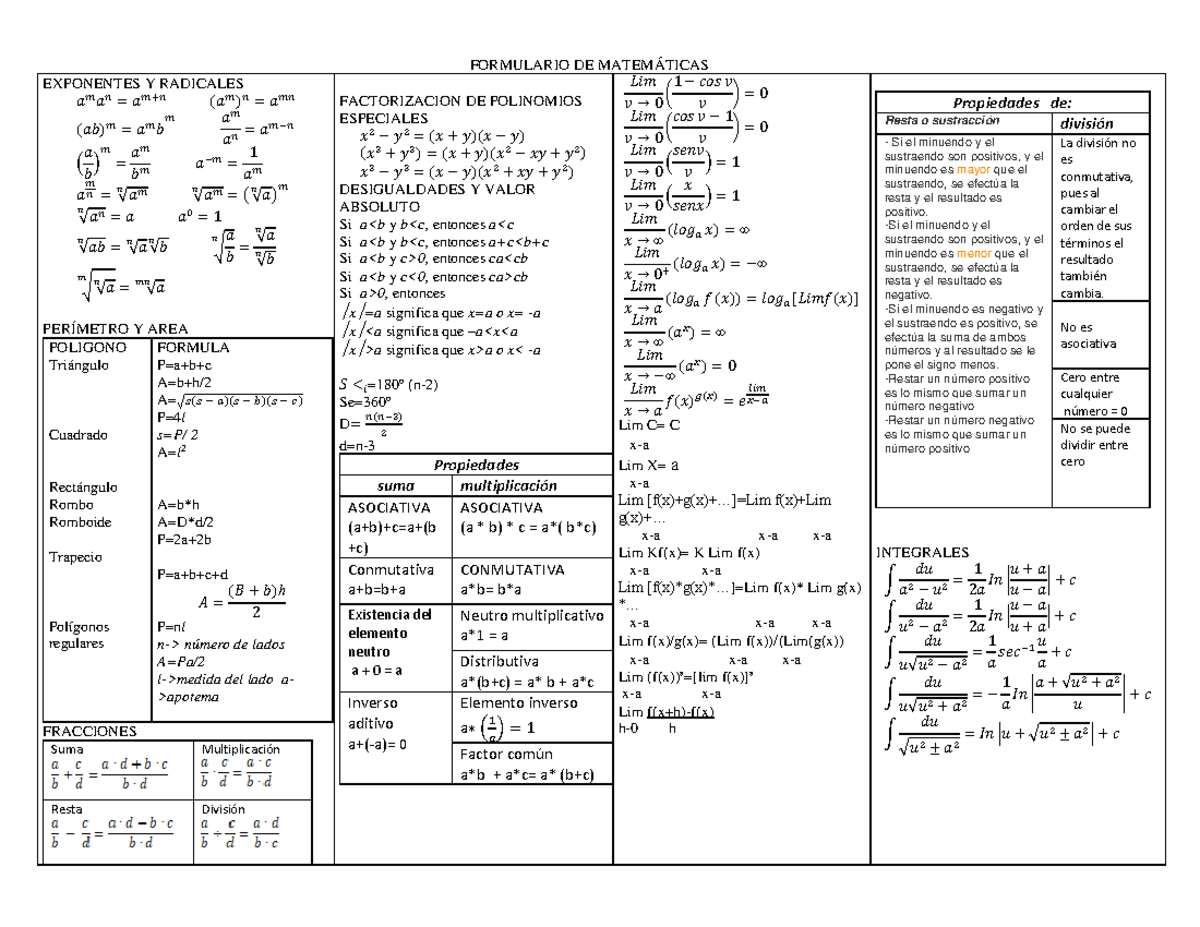 FORMULARIO DE MATEMÁTICAS
EXPONENTES Y RADICALES
a^m a^n = a^{m+n} (a^m)^n = a^{mn}
(ab)^m = a^m b^m a^m/a^n = a^{m−n}
(a/b)^m = a^m/b^m a^{−m} = 1/a^m
a^{m/n} = ⁿ√a^m ⁿ√a^m = (ⁿ√a)^m
ⁿ√a^n = a a^0 = 1
ⁿ√ab = ⁿ√a ⁿ√b ⁿ√(a/b) = ⁿ√a/ⁿ√b
ᵐ√(ⁿ√a) = ᵐⁿ√a
PERÍMETRO Y AREA
POLIGONO FORMULA
Triángulo P=a+b+c
A=b+h/2
A=√(s(s − a)(s − b)(s − c))
P=4l
Cuadrado s=P/ 2
A=l²
Rectángulo
Rombo A=b*h
Romboide A=D*d/2
P=2a+2b
Trapecio
P=a+b+c+d
A = (B + b)h/2
Polígonos P=nl
regulares n-> número de lados
A=Pa/2
l->medida del lado a-
>apotema
FRACCIONES
Suma Multiplicación
a/b + c/d = (a·d + b·c)/(b·d) a/b · c/d = (a·c)/(b·d)
Resta División
a/b − c/d = (a·d − b·c)/(b·d) a/b ÷ c/d = (a·d)/(b·c)
FACTORIZACION DE POLINOMIOS
ESPECIALES
x² − y² = (x + y)(x − y)
(x³ + y³) = (x + y)(x² − xy + y²)
x³ − y³ = (x − y)(x² + xy + y²)
DESIGUALDADES Y VALOR
ABSOLUTO
Si a<b y b<c, entonces a<c
Si a<b y b<c, entonces a+c<b+c
Si a<b y c>0, entonces ca<cb
Si a<b y c<0, entonces ca>cb
Si a>0, entonces
/x/=a significa que x=a o x= -a
/x/<a significa que –a<x<a
/x/>a significa que x>a o x< -a
S <ᵢ=180º (n-2)
Se=360º
D= n(n−3)/2
d=n-3
Propiedades
suma multiplicación
ASOCIATIVA ASOCIATIVA
(a+b)+c=a+(b (a * b) * c = a*( b*c)
+c)
Conmutativa CONMUTATIVA
a+b=b+a a*b= b*a
Existencia del Neutro multiplicativo
elemento a*1 = a
neutro Distributiva
a + 0 = a a*(b+c) = a* b + a*c
Inverso Elemento inverso
aditivo a* (1/a) = 1
a+(-a)= 0 Factor común
a*b + a*c= a* (b+c)
Lim v → 0 ((1 − cos v)/v) = 0
Lim v → 0 ((cos v − 1)/v) = 0
Lim v → 0 (senv/v) = 1
Lim v → 0 (x/senx) = 1
Lim x → ∞ (logₐ x) = ∞
Lim x → 0⁺ (logₐ x) = −∞
Lim x → a (logₐ f (x)) = logₐ[Limf(x)]
Lim x → ∞ (a^x) = ∞
Lim x → −∞ (a^x) = 0
Lim x → a f(x)^{g(x)} = e^{lim x−a}
Lim C= C
x-a
Lim X= a
x-a
Lim [f(x)+g(x)+…]=Lim f(x)+Lim
g(x)+…
x-a x-a x-a
Lim Kf(x)= K Lim f(x)
x-a x-a
Lim [f(x)*g(x)*…]=Lim f(x)* Lim g(x)
*…
x-a x-a x-a
Lim f(x)/g(x)= (Lim f(x))/(Lim(g(x))
x-a x-a x-a
Lim (f(x))ⁿ=[lim f(x)]ⁿ
x-a x-a
Lim f(x+h)-f(x)
h-0 h
Propiedades de:
Resta o sustracción división
- Si el minuendo y el
sustraendo son positivos, y el
minuendo es mayor que el
sustraendo, se efectúa la
resta y el resultado es
positivo.
-Si el minuendo y el
sustraendo son positivos, y el
minuendo es menor que el
sustraendo, se efectúa la
resta y el resultado es
negativo.
-Si el minuendo es negativo y
el sustraendo es positivo, se
efectúa la suma de ambos
números y al resultado se le
pone el signo menos.
-Restar un número positivo
es lo mismo que sumar un
número negativo
-Restar un número negativo
es lo mismo que sumar un
número positivo
La división no
es
conmutativa,
pues al
cambiar el
orden de sus
términos el
resultado
también
cambia.
No es
asociativa
Cero entre
cualquier
número = 0
No se puede
dividir entre
cero
INTEGRALES
∫ du/(a² − u²) = 1/2a In |(u + a)/(u − a)| + c
∫ du/(u² − a²) = 1/2a In |(u − a)/(u + a)| + c
∫ du/(u√(u² − a²)) = 1/a sec⁻¹ u/a + c
∫ du/(u√(u² + a²)) = − 1/a In |(a + √(u² + a²))/u| + c
∫ du/√(u² ± a²) = In |u + √(u² ± a²)| + c